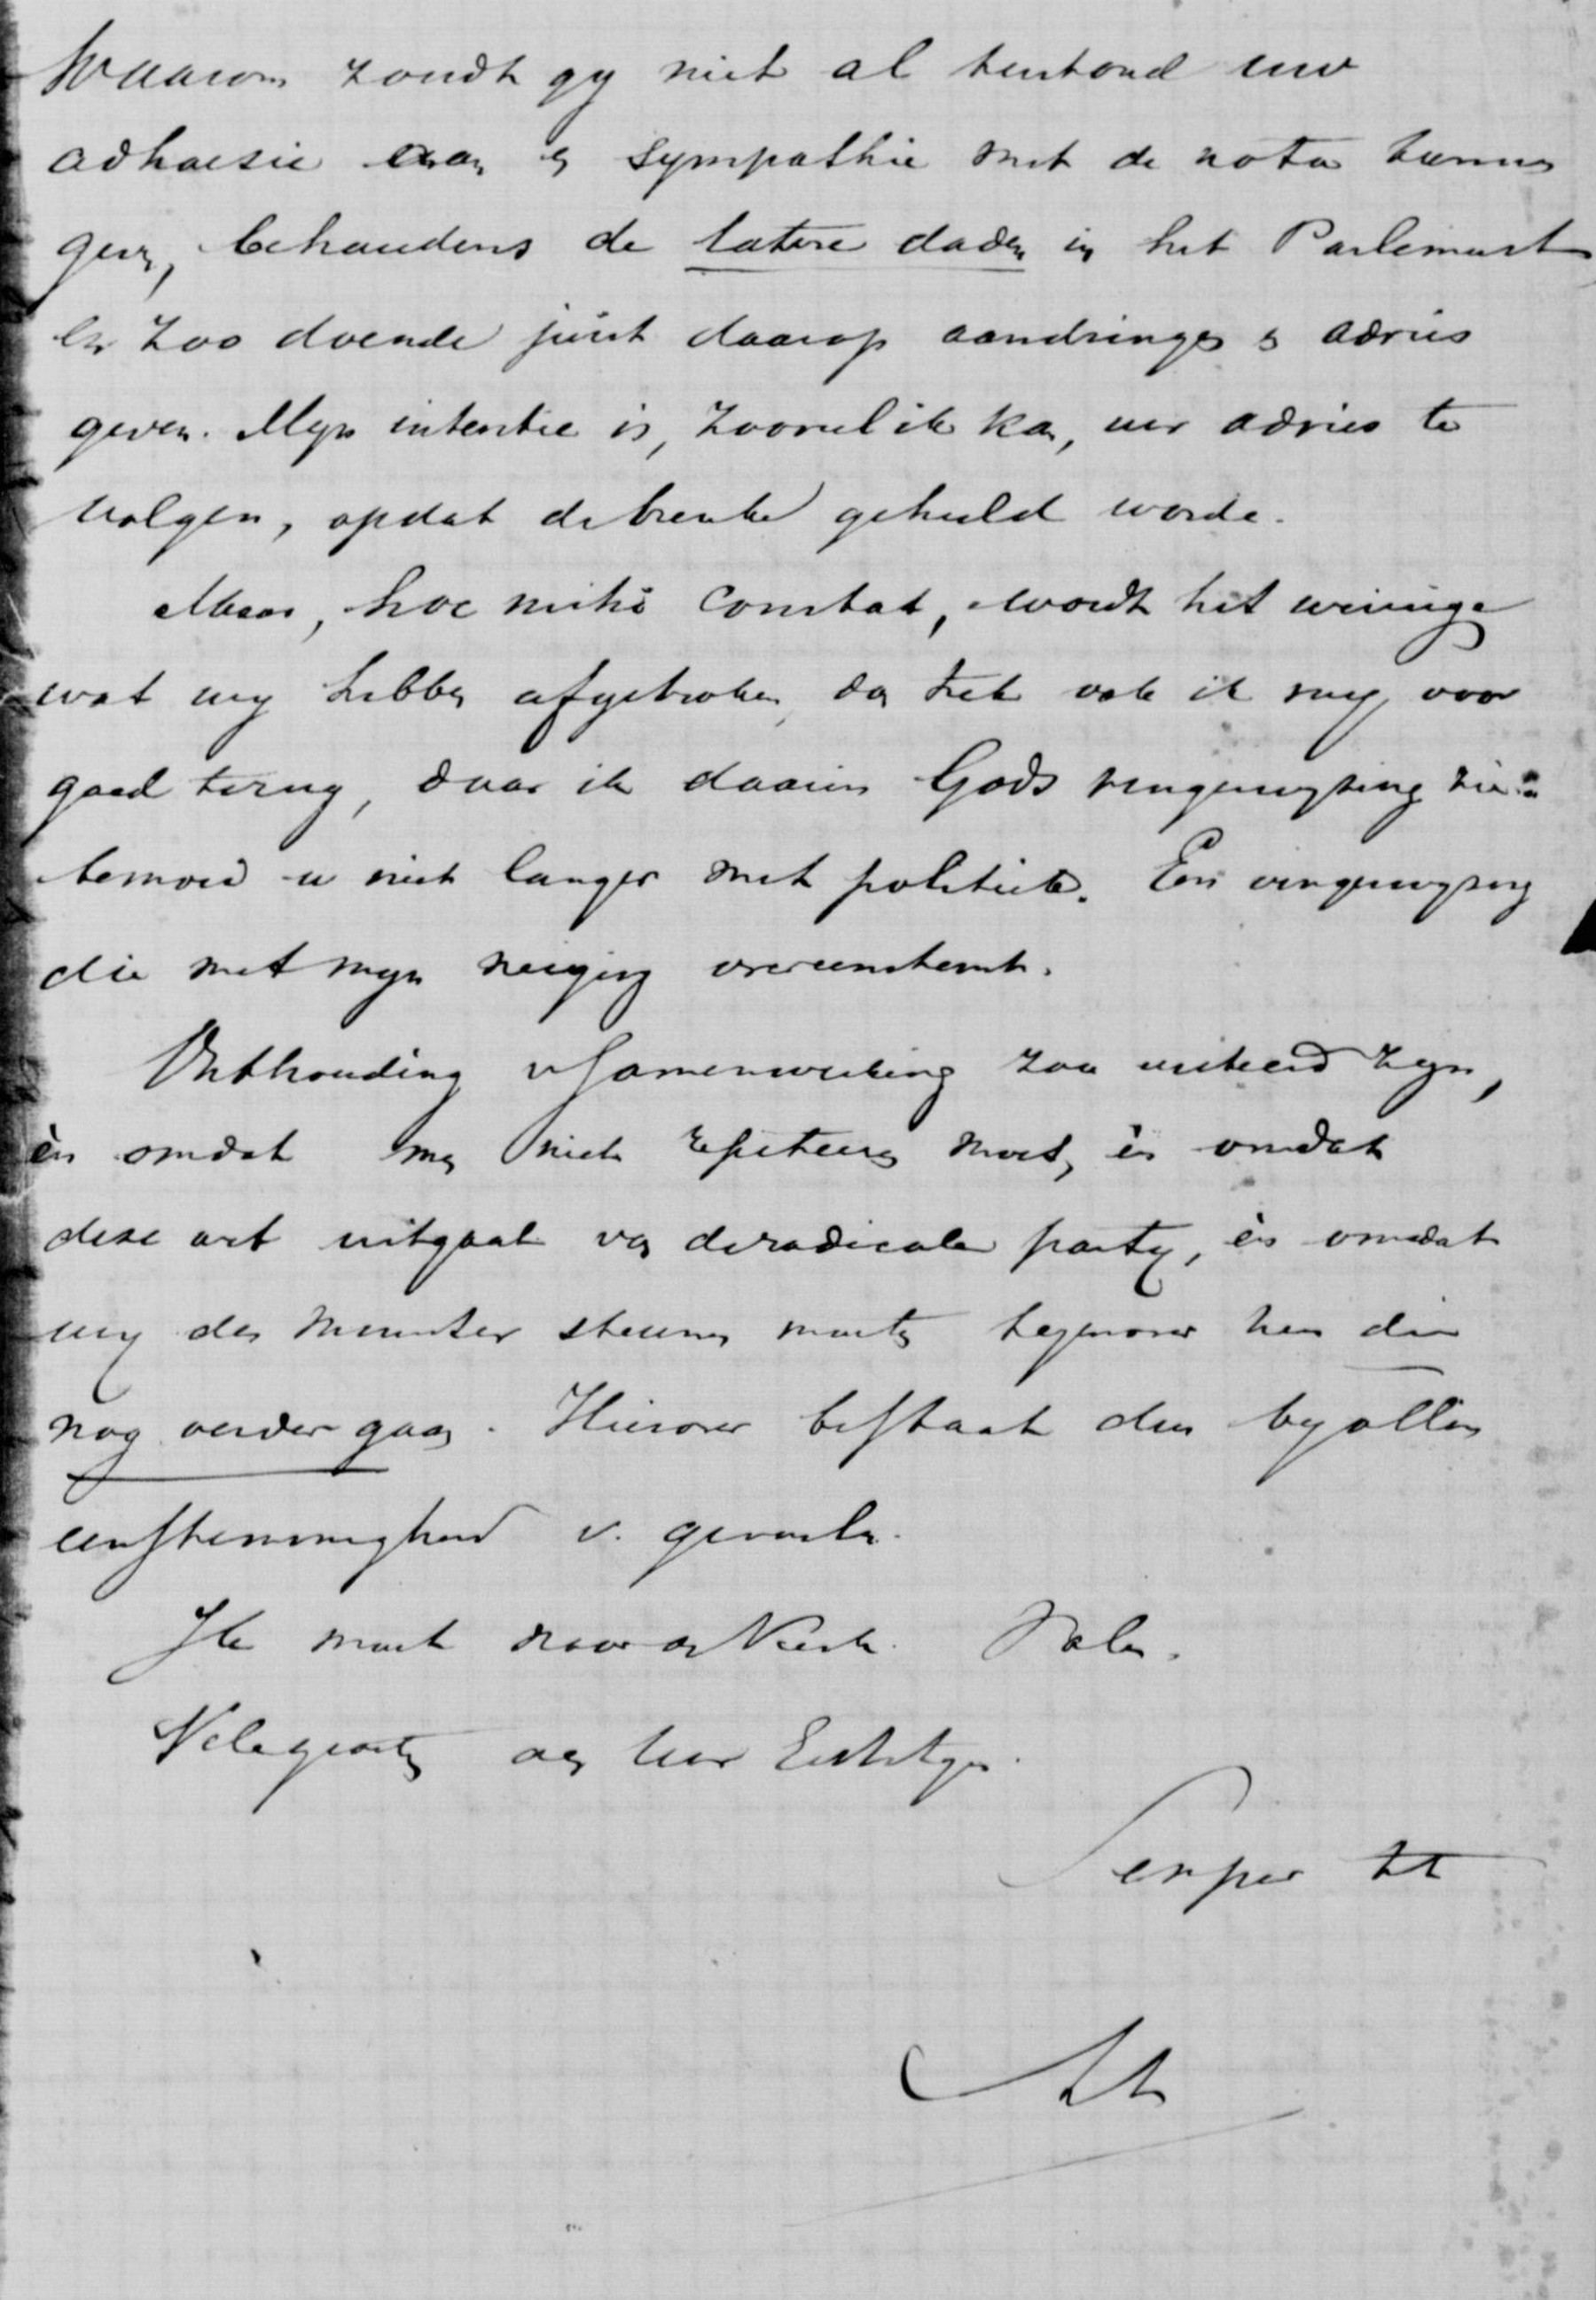 Waarom zoudt gy niet al terstond uw
adhaesie aan & sympathie met de nota kunnen
geven, behoudens de latere daden in het Parlement
en zoo doende juist daarop aandringen & advies
geven. Myn intentie is, zooveel ik kan, uw advies te
volgen, opdat de breuke geheeld worde.
Maar, hoc mihi constat, wordt het weinige
wat wy hebben afgebroken, dan trek ook ik my voor
goed terug, daar ik daarin Gods vingerwyzing zie:
bemoei u niet langer met politiek. Een vingerwyzing
die met myn neiging overeenstemt.
Onthouding v samenwerking zou verkeerd zyn,
èn omdat men niet moet, èn omdat
deze wet uitgaat van de radicale party, èn omdat
wy den Minister steunen moeten tegenover hen die
nog verder gaan. Hierover bestaat dan by allen
eenstemmigheid v. gevoelen.
Ik moet naar de Kerk. Vale.
Vele groeten aan uw Echtgen.
Semper tt